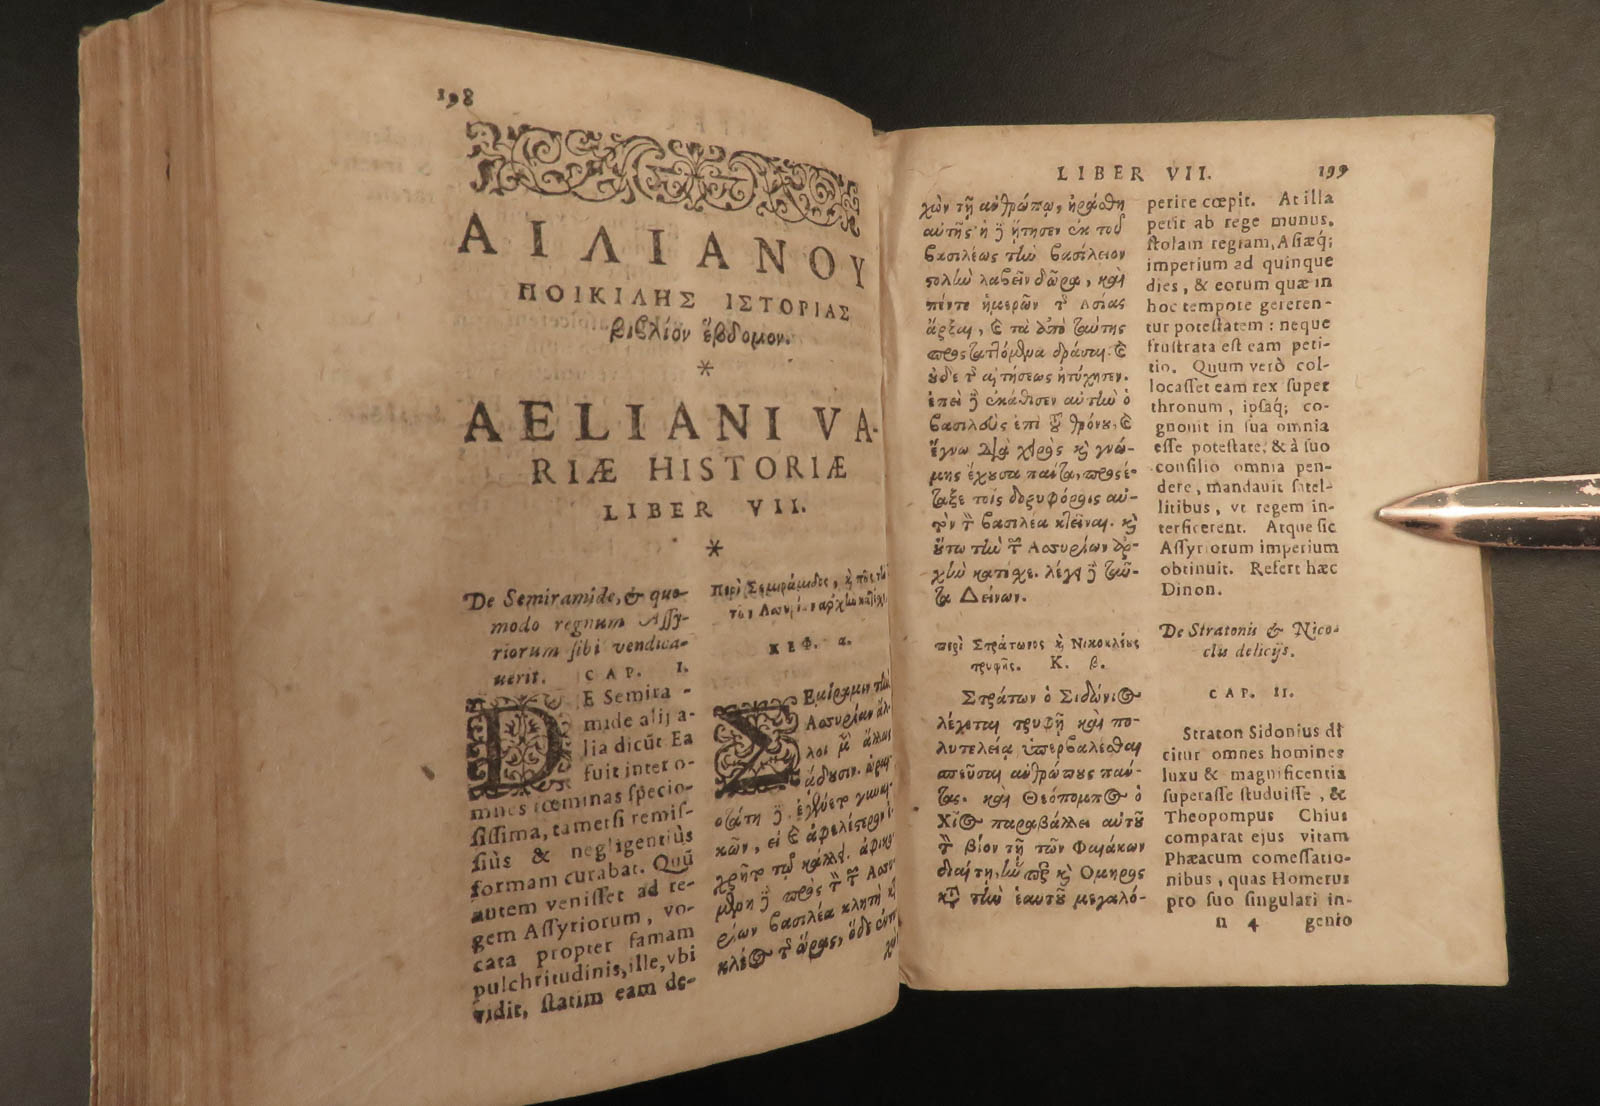 198
ΑΙΛΙΑΝΟΥ
ΠΟΙΚΙΛΗΣ ΙΣΤΟΡΙΑΣ
βιβλίον ἕβδομον.
*
AELIANI VA-
RIÆ HISTORIÆ
LIBER VII.
*
De Semiramide, & quo-
modo regnum Assy-
riorum sibi vendica-
uerit. CAP. I.
DE Semira-
mide alij a-
lia dicūt Ea
fuit inter o-
mnes fœminas specio-
sissima, tametsi remis-
siùs & negligentiùs
formam curabat. Quū
autem venisset ad re-
gem Assyriorum, vo-
cata propter famam
pulchritudinis, ille, vbi
vidit, statim eam de-
Περὶ Σεμιράμιδος, ὶ πῶς τὴν
τῶν Ασσυρίων αρχὴν κατέχει
ΚΕΦ. α.
ΣΕμίραμιν τὴν
Ασσυρίαν ἄλ-
λοι μὲν ἄλλως
ᾄδουσιν. ὡραι-
οτάτη δὲ ἐγένετο γυναι-
κῶν, εἰ καὶ ἀφελέστερον ἐ-
χρῆτο τῷ κάλλει. ἀφικο-
μένη δὲ πρὸς τὸν τῶν Ασσυ-
ρίων βασιλέα κλητὴ κτ̀
κλέος τῆς ὥρας, ὅδε ἐντυ-
χὼ
LIBER VII. 199
χὼν τῇ ἀνθρώπῳ, ἠράσθη
αὐτῆς· ἡ δὲ ᾔτησεν ἐκ τοῦ
βασιλέως τὴν βασίλειον
στολὴν λαβεῖν δῶρα, καὶ
πέντε ἡμερῶν τῆς Ασίας
ἄρξαι, καὶ τὰ ἀπὸ ταύτης
προσταττόμενα δράσαι. καὶ
οὐδὲ τῆς αἰτήσεως ἠτύχησεν.
ἐπεὶ δὲ ἐκάθισεν αὐτὴν ὁ
βασιλεὺς ἐπὶ τοῦ θρόνου, καὶ
ἔγνω διὰ χειρὸς καὶ γνώ-
μης ἔχουσα πάντα, προσέ-
ταξε τοῖς δορυφόροις αὐ-
τὸν τὸν βασιλέα κτεῖναι. καὶ
οὕτω τὴν τῶν Ασσυρίων ἀρ-
χὴν κατέχε. λέγει δὲ ταῦ-
τα Δείνων.
περὶ Στράτωνος καὶ Νικοκλέους
τρυφῆς. Κ. β.
Στράτων ὁ Σιδώνιος
λέγεται τρυφῇ καὶ πο-
λυτελείᾳ ὑπερβαλέσθαι
σπεῦσαι ἀνθρώπους πάν-
τας. καὶ Θεόπομπος ὁ
Χῖος παραβάλλει αὐτοῦ
τὸν βίον τῇ τῶν Φαιάκων
διαίτῃ, ἣν πες καὶ Ομηρος
κτ̀ τὴν ἑαυτοῦ μεγαλό-
perire cœpit. At illa
petit ab rege munus,
stolam regiam, Asiæq;
imperium ad quinque
dies, & eorum quæ in
hoc tempore gereren-
tur potestatem: neque
frustrata est eam peti-
tio. Quum verò col-
locasset eam rex super
thronum, ipsaq; co-
gnouit in sua omnia
esse potestate, & à suo
consilio omnia pen-
dere, mandauit satel-
litibus, vt regem in-
terficerent. Atque sic
Assyriorum imperium
obtinuit. Refert hæc
Dinon.
De Stratonis & Nico-
clis delicijs.
CAP. II.
Straton Sidonius di
citur omnes homines
luxu & magnificentia
superasse studuisse, &
Theopompus Chius
comparat ejus vitam
Phæacum comessatio-
nibus, quas Homerus
pro suo singulari in-
n 4 genio